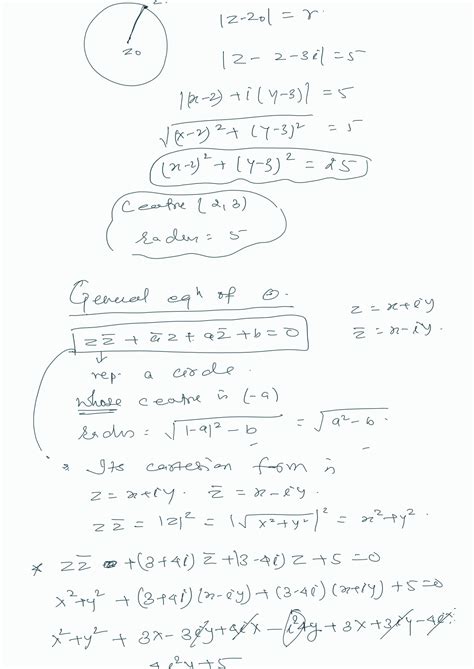 z.
z₀
|z-z₀| = r.
|z - 2-3i| = 5
|(x-2) + i(y-3)| = 5
√(x-2)² + (y-3)² = 5
(x-2)² + (y-3)² = 25
Centre (2, 3)
radius = 5
General eqⁿ of ⊙.
z = x+iy
z z̄ + ā z + a z̄ + b = 0
z̄ = x-iy.
rep. a circle.
whose centre is (-a)
radius = √|-a|² - b = √a² - b.
* Its cartesian form is
z = x+iy. z̄ = x-iy.
z z̄ = |z|² = |√x²+y²|² = x²+y².
* z z̄ + (3+4i) z̄ + (3-4i) z + 5 = 0
x²+y² + (3+4i) (x-iy) + (3-4i) (x+iy) + 5 = 0
x²+y² + 3x - 3iy + 4ix - i²4y + 3x + 3iy - 4ix
4i²y + 5